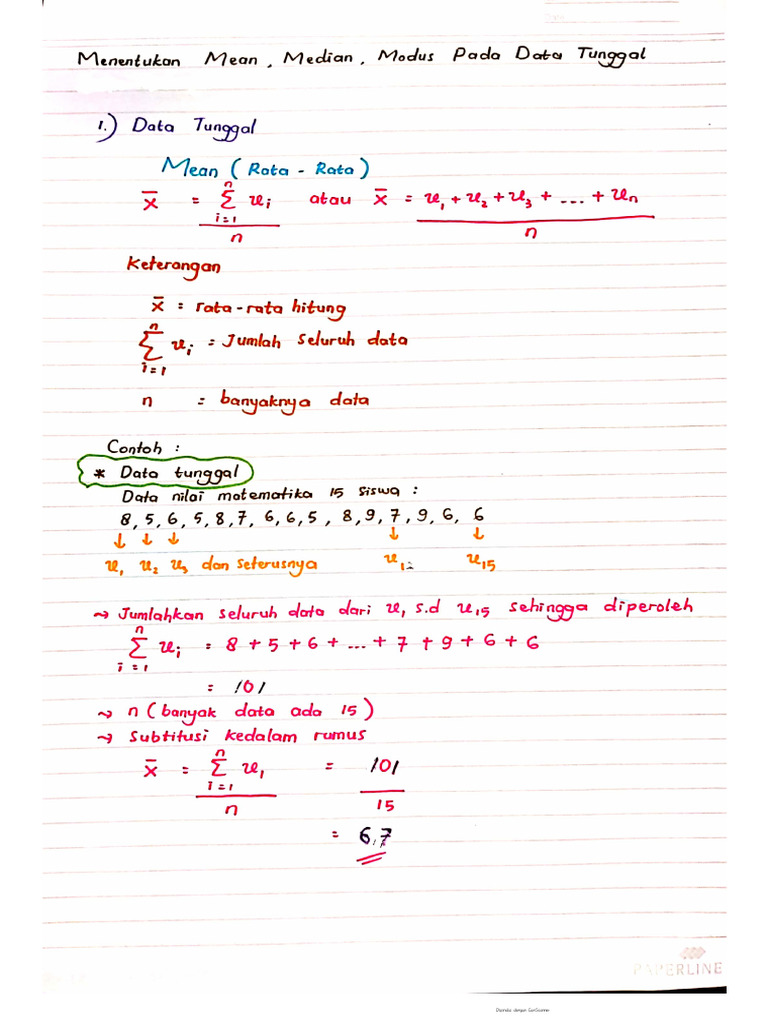 Menentukan Mean, Median, Modus Pada Data Tunggal
1.) Data Tunggal
Mean (Rata-Rata)
x̄ = n Σ i=1 xi / n atau x̄ = x1 + x2 + x3 + ... + xn / n
Keterangan
x̄ = rata-rata hitung
n Σ i=1 xi = Jumlah seluruh data
n = banyaknya data
Contoh :
* Data tunggal
Data nilai matematika 15 siswa :
8, 5, 6, 5, 8, 7, 6, 6, 5, 8, 9, 7, 9, 6, 6
↓ ↓ ↓ ↓ ↓
x1 x2 x3 dan seterusnya x12 x15
~> Jumlahkan seluruh data dari x1 s.d x15 sehingga diperoleh
n Σ i=1 xi = 8 + 5 + 6 + ... + 7 + 9 + 6 + 6
= 101
~> n (banyak data ada 15)
~> Subtitusi kedalam rumus
x̄ = n Σ i=1 x1 / n = 101 / 15
= 6,7
PAPERLINE
Dipindai dengan CamScanner